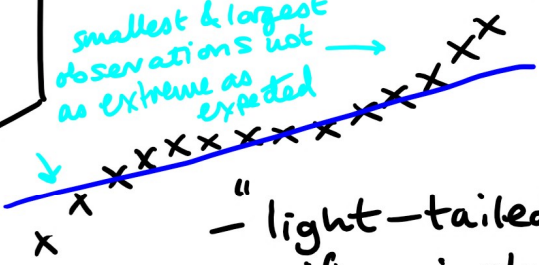 smallest & largest
observations not
as extreme as
expected
— "light-tailed